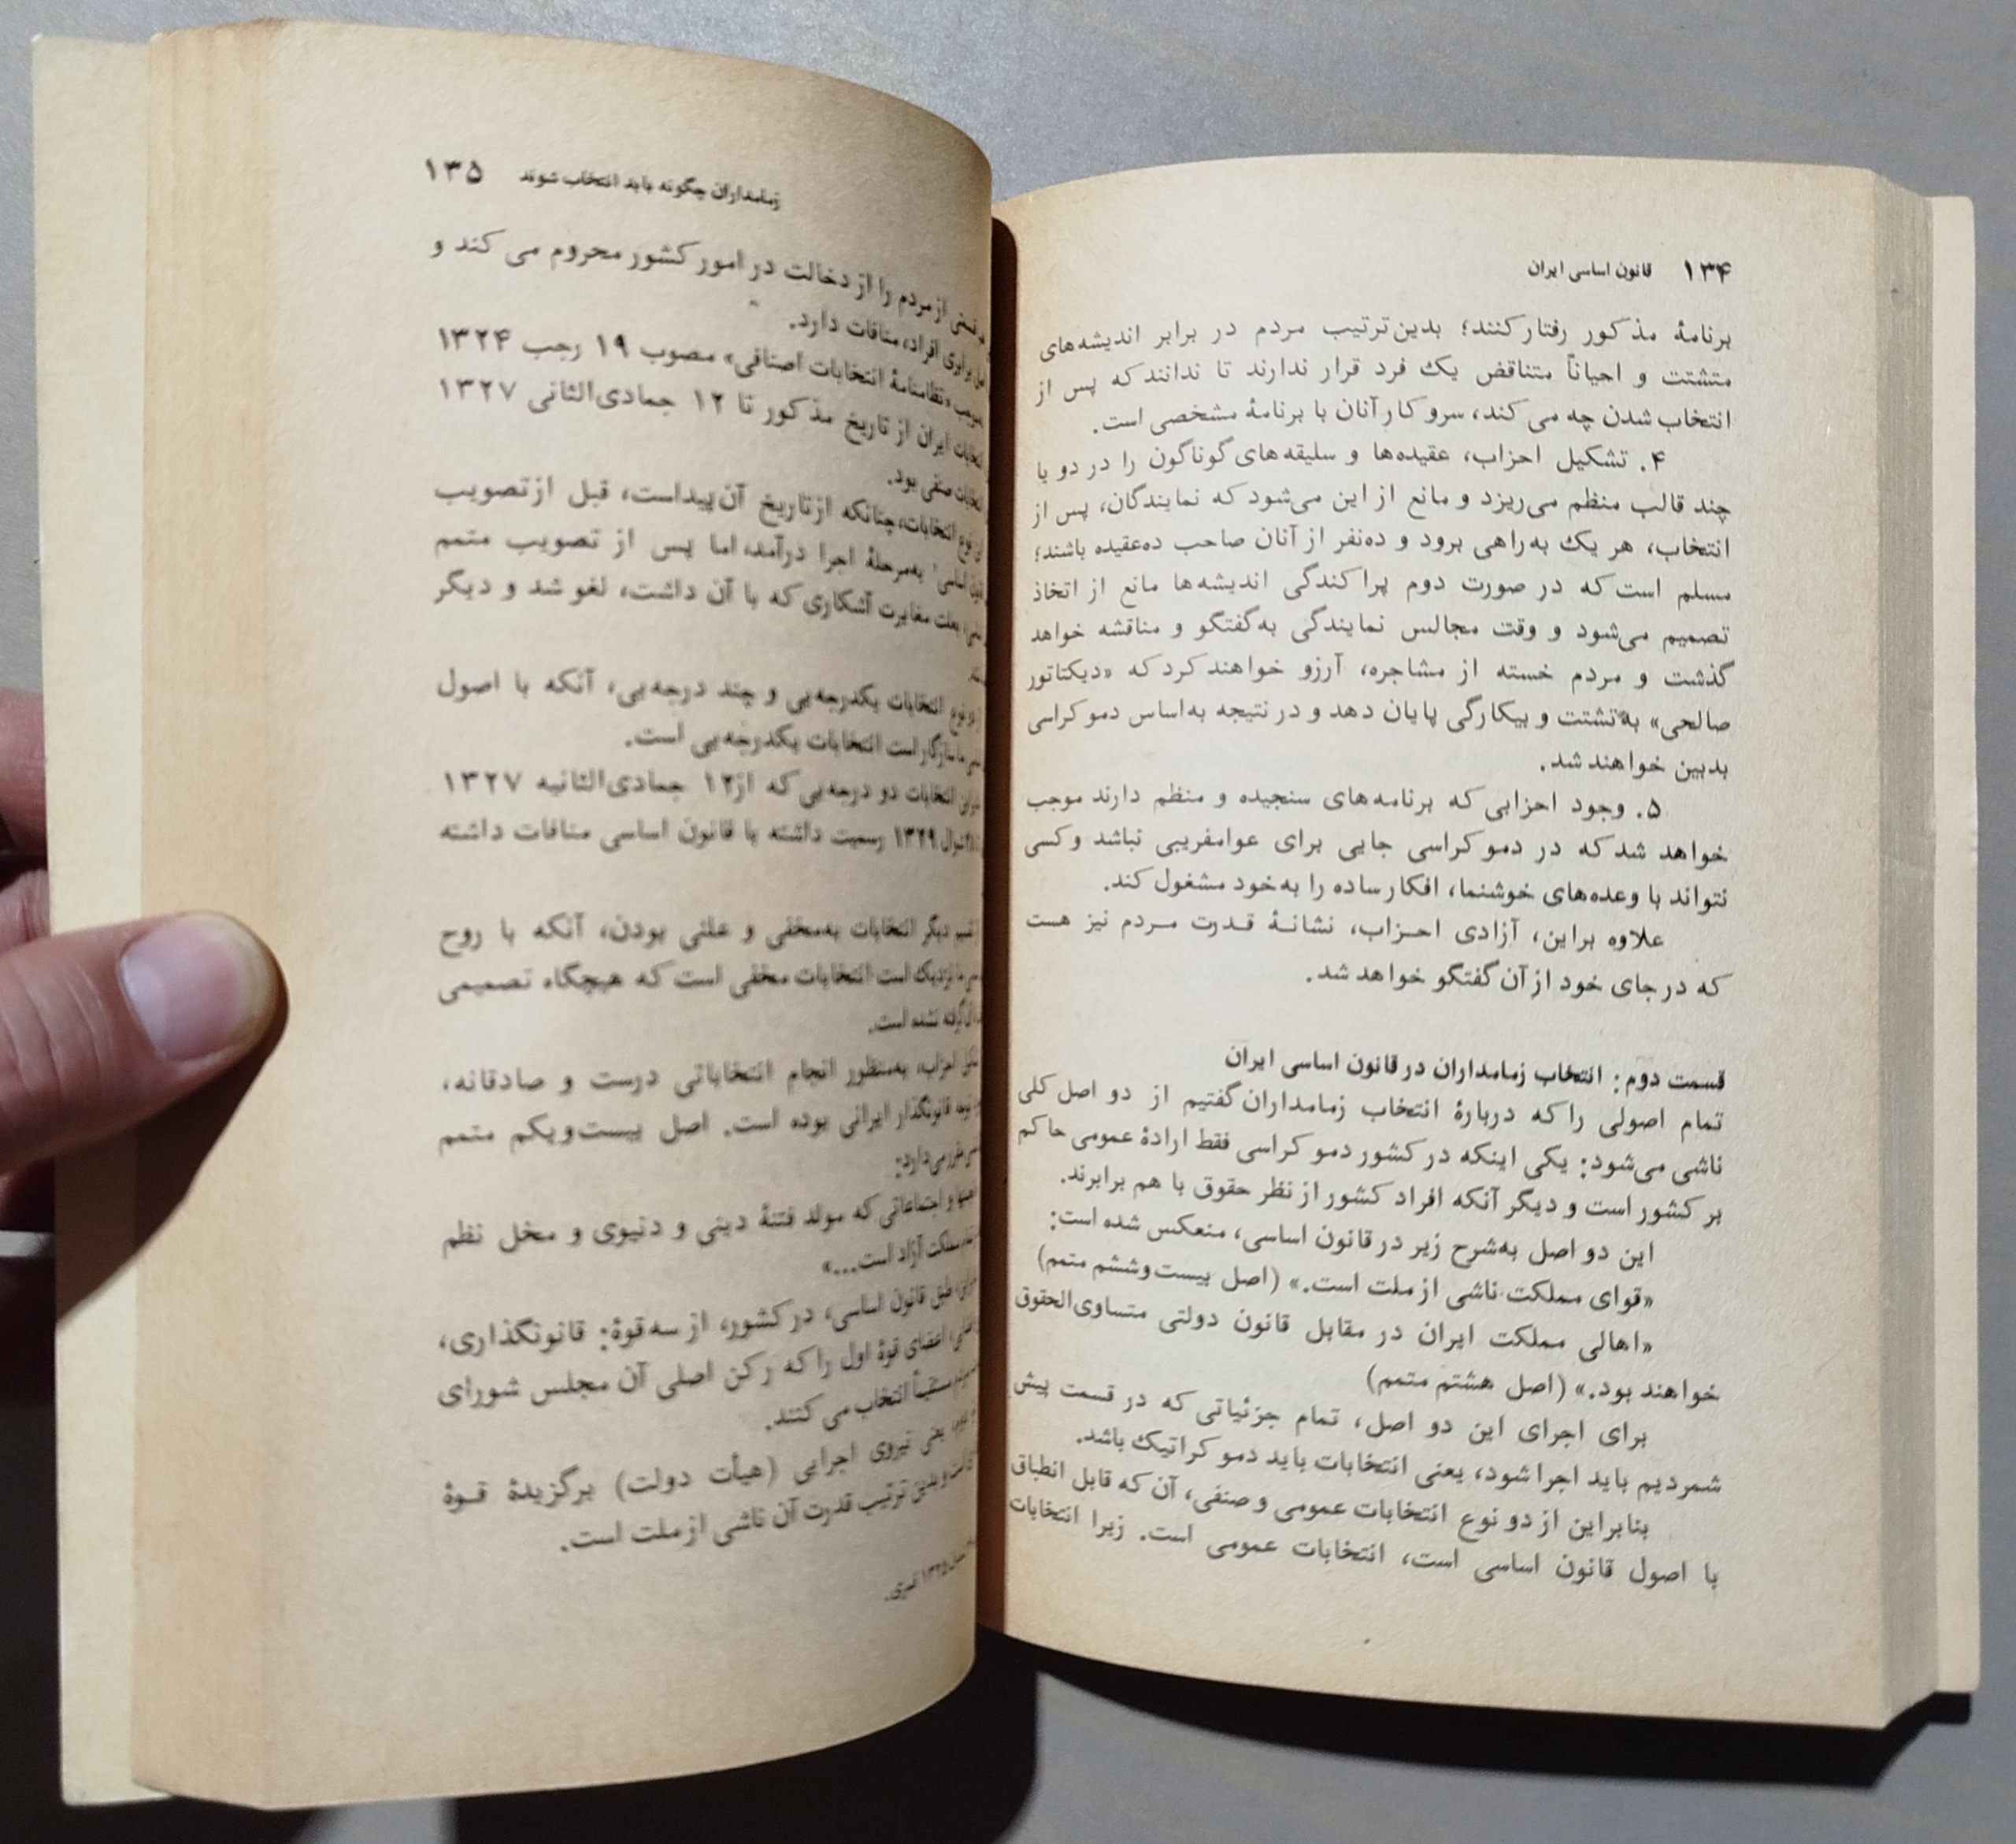 ۱۳۴ قانون اساسی ایران
برنامهٔ مذکور رفتار کنند؛ بدین‌ترتیب مردم در برابر اندیشه‌های
متشتت و احیاناً متناقض یک فرد قرار ندارند تا ندانند که پس از
انتخاب شدن چه می‌کند، سروکار آنان با برنامهٔ مشخصی است.
۴. تشکیل احزاب، عقیده‌ها و سلیقه‌های گوناگون را در دو یا
چند قالب منظم می‌ریزد و مانع از این می‌شود که نمایندگان، پس از
انتخاب، هر یک به‌راهی برود و ده‌نفر از آنان صاحب ده‌عقیده باشند؛
مسلم است که در صورت دوم پراکندگی اندیشه‌ها مانع از اتخاذ
تصمیم می‌شود و وقت مجالس نمایندگی به‌گفتگو و مناقشه خواهد
گذشت و مردم خسته از مشاجره، آرزو خواهند کرد که «دیکتاتور
صالحی» به‌تشتت و بیکارگی پایان دهد و در نتیجه به‌اساس دموکراسی
بدبین خواهند شد.
۵. وجود احزابی که برنامه‌های سنجیده و منظم دارند موجب
خواهد شد که در دموکراسی جایی برای عوامفریبی نباشد و کسی
نتواند با وعده‌های خوشنما، افکار ساده را به‌خود مشغول کند.
علاوه براین، آزادی احزاب، نشانهٔ قدرت مردم نیز هست
که در جای خود از آن گفتگو خواهد شد.
قسمت دوم: انتخاب زمامداران در قانون اساسی ایران
تمام اصولی را که دربارهٔ انتخاب زمامداران گفتیم از دو اصل کلی
ناشی می‌شود: یکی اینکه در کشور دموکراسی فقط ارادهٔ عمومی حاکم
بر کشور است و دیگر آنکه افراد کشور از نظر حقوق با هم برابرند.
این دو اصل به‌شرح زیر در قانون اساسی، منعکس شده است:
«قوای مملکت ناشی از ملت است.» (اصل بیست‌وششم متمم)
«اهالی مملکت ایران در مقابل قانون دولتی متساوی‌الحقوق
خواهند بود.» (اصل هشتم متمم)
برای اجرای این دو اصل، تمام جزئیاتی که در قسمت پیش
شمردیم باید اجرا شود، یعنی انتخابات باید دموکراتیک باشد.
بنابراین از دو نوع انتخابات عمومی و صنفی، آن که قابل انطباق
با اصول قانون اساسی است، انتخابات عمومی است. زیرا انتخابات
زمامداران چگونه باید انتخاب شوند ۱۳۵
از مردم را از دخالت در امور کشور محروم می‌کند و
برابری افراد، منافات دارد.
«نظامنامهٔ انتخابات اصنافی» مصوب ۱۹ رجب ۱۳۲۴
انتخابات ایران از تاریخ مذکور تا ۱۲ جمادی‌الثانی ۱۳۲۷
صنفی بود.
نوع انتخابات، چنانکه از تاریخ آن پیداست، قبل از تصویب
اساسی به‌مرحلهٔ اجرا درآمد، اما پس از تصویب متمم
بعلت مغایرت آشکاری که با آن داشت، لغو شد و دیگر
دو نوع انتخابات یکدرجه‌یی و چند درجه‌یی، آنکه با اصول
ما سازگار است انتخابات یکدرجه‌یی است.
انتخابات دو درجه‌یی که از ۱۲ جمادی‌الثانیه ۱۳۲۷
شوال ۱۳۲۹ رسمیت داشته با قانون اساسی منافات داشته
دیگر انتخابات به‌مخفی و علنی بودن، آنکه با روح
ما نزدیک است انتخابات مخفی است که هیچگاه تصمیمی
گرفته نشده است.
احزاب، به‌منظور انجام انتخاباتی درست و صادقانه،
توجه قانونگذار ایرانی بوده است. اصل بیست‌ویکم متمم
می‌دارد:
و اجتماعاتی که مولد فتنهٔ دینی و دنیوی و مخل نظم
مملکت آزاد است...»
طبق قانون اساسی، در کشور، از سه قوهٔ: قانونگذاری،
اعضای قوهٔ اول را که رکن اصلی آن مجلس شورای
مستقیماً انتخاب می‌کنند.
یعنی نیروی اجرایی (هیأت دولت) برگزیدهٔ قوهٔ
است و بدین ترتیب قدرت آن ناشی از ملت است.
۱۳۲۵ قمری.